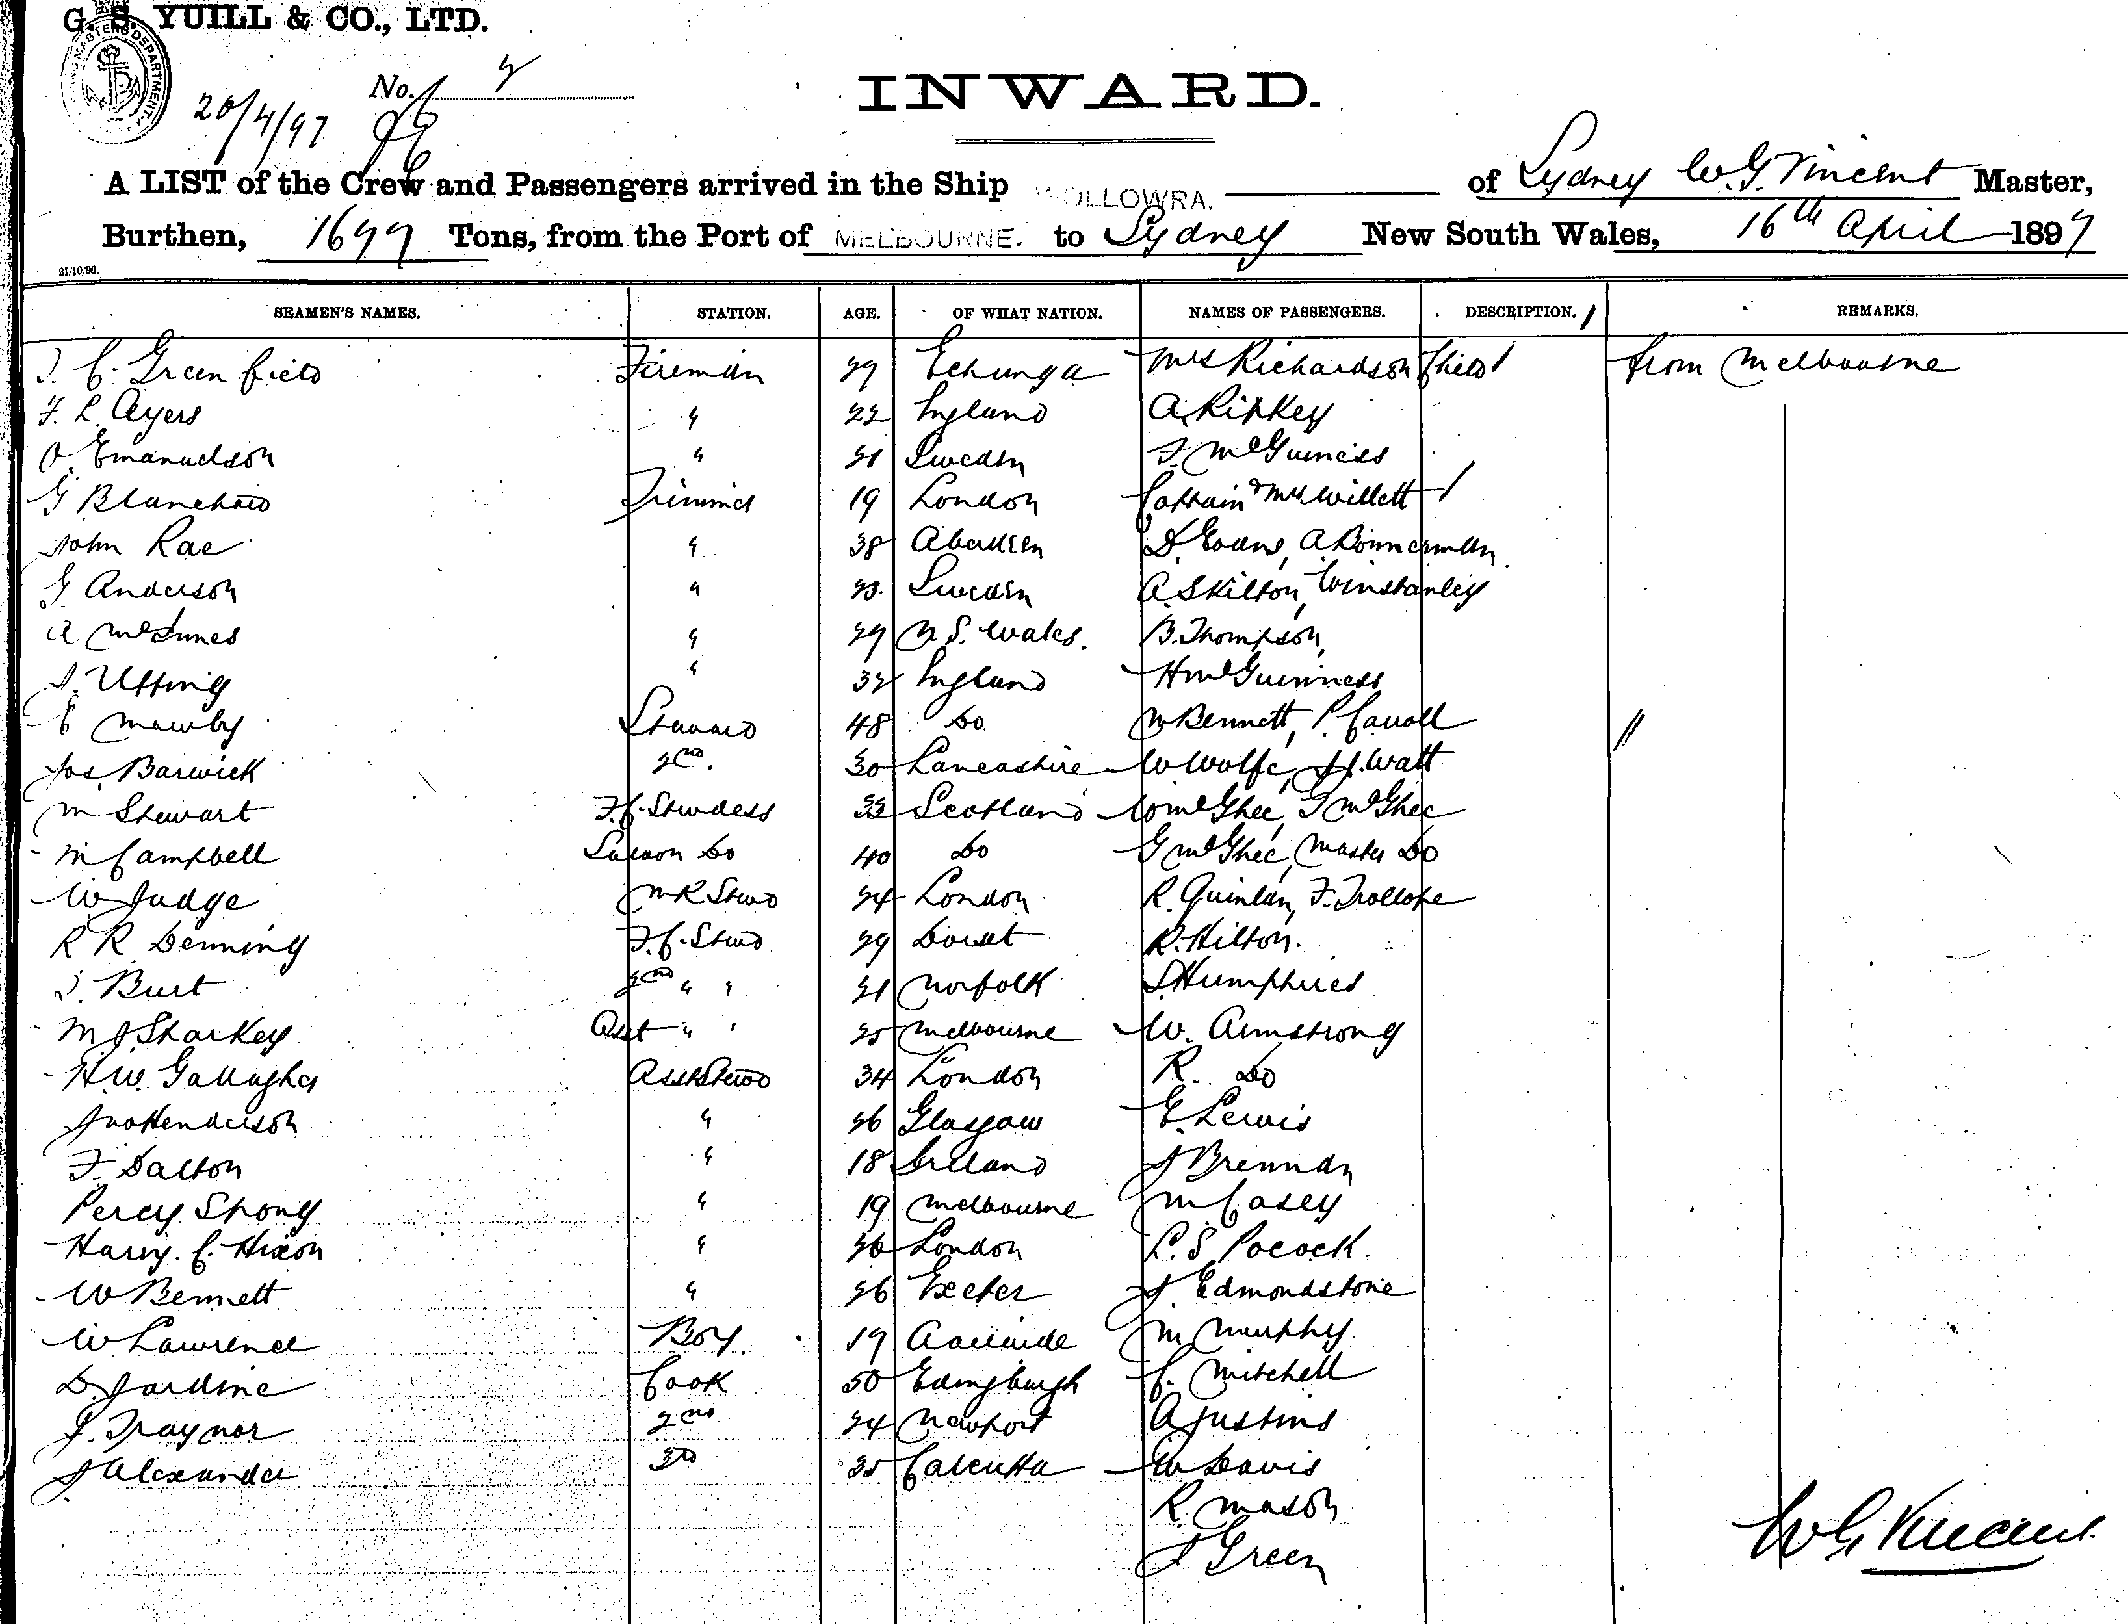 G. S. YUILL & CO., LTD.
No. 7
20/4/97
INWARD.
A LIST of the Crew and Passengers arrived in the Ship WOLLOWRA. of Sydney W. G. Vincent Master,
Burthen, 1697 Tons, from the Port of MELBOURNE. to Sydney New South Wales, 16th April 1897
21/10/96.
SEAMEN'S NAMES. STATION. AGE. OF WHAT NATION. NAMES OF PASSENGERS. DESCRIPTION. REMARKS.
Greenfield Fireman 27 Echunga Mrs Richardson Child from Melbourne
F. L. Ayers " 22 England A. Ripkey
O. Emanuelson " 21 Sweden F. McGuiness
G Blanchard Trimmer 19 London Captain & Mrs Willett
John Rae " 38 Aberdeen D. Evans, A. Bonnerman
G Anderson " 23 Sweden A. Skilton, Winstanley
A McInnes " 29 N. S. Wales. B. Thompson,
Utting " 32 England H McGuinness
E Mawby Steward 48 Do W Bennett, P. Carroll
Jas. Barwick 2nd. 30 Lancashire W Wolfe, J. J. Watt
M Stewart F.C. Stwdess 33 Scotland W McGhee, T McGhee
M Campbell Saloon Do 40 Do G McGhee, Master Do
W Judge M R Stwd 24 London R. Quinlan, F. Trollope
R R Denning F.C. Stwd 29 Dorset R. Hilton.
Burt 2nd " " 21 Norfolk S Humphries
M J Sharkey Asst " " 25 Melbourne W. Armstrong
H. W. Gallagher Asst Stwd 34 London R. Do
Jno Henderson " 26 Glasgow E. Lewis
F. Dalton " 18 Ireland J Brennan
Percy Spong " 19 Melbourne M Casey
Harry. C. Hixon " 26 London P. S. Pocock.
W Bennett " 26 Exeter J. Edmondstone
W Lawrence Boy. 19 Adelaide M Murphy.
D. Jardine Cook 50 Edingburgh C. Mitchell
J. Traynor 2nd 24 Newport A Justins
J Alexander 3rd 35 Calcutta W Davis
R. Mason
J Green
W G Vincent